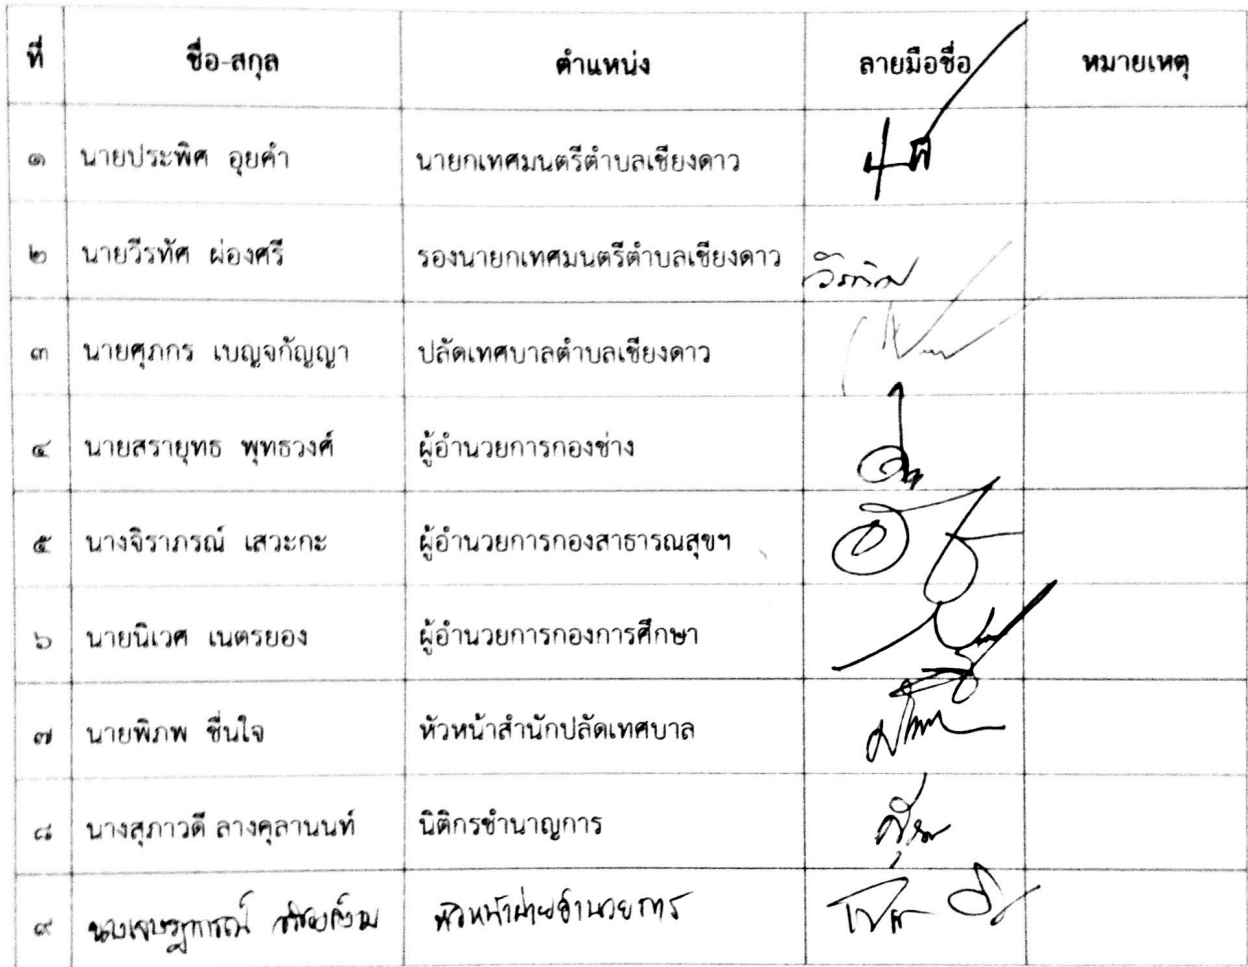 ที่ ชื่อ-สกุล ตำแหน่ง ลายมือชื่อ หมายเหตุ
๑ นายประพิศ อุยคำ นายกเทศมนตรีตำบลเชียงดาว
๒ นายวีรทัศ ผ่องศรี รองนายกเทศมนตรีตำบลเชียงดาว
๓ นายศุภกร เบญจกัญญา ปลัดเทศบาลตำบลเชียงดาว
๔ นายสรายุทธ พุทธวงศ์ ผู้อำนวยการกองช่าง
๕ นางจิราภรณ์ เสวะกะ ผู้อำนวยการกองสาธารณสุขฯ
๖ นายนิเวศ เนตรยอง ผู้อำนวยการกองการศึกษา
๗ นายพิภพ ชื่นใจ หัวหน้าสำนักปลัดเทศบาล
๘ นางสุภาวดี ลางคุลานนท์ นิติกรชำนาญการ
๙ หัวหน้าฝ่ายอำนวยการ